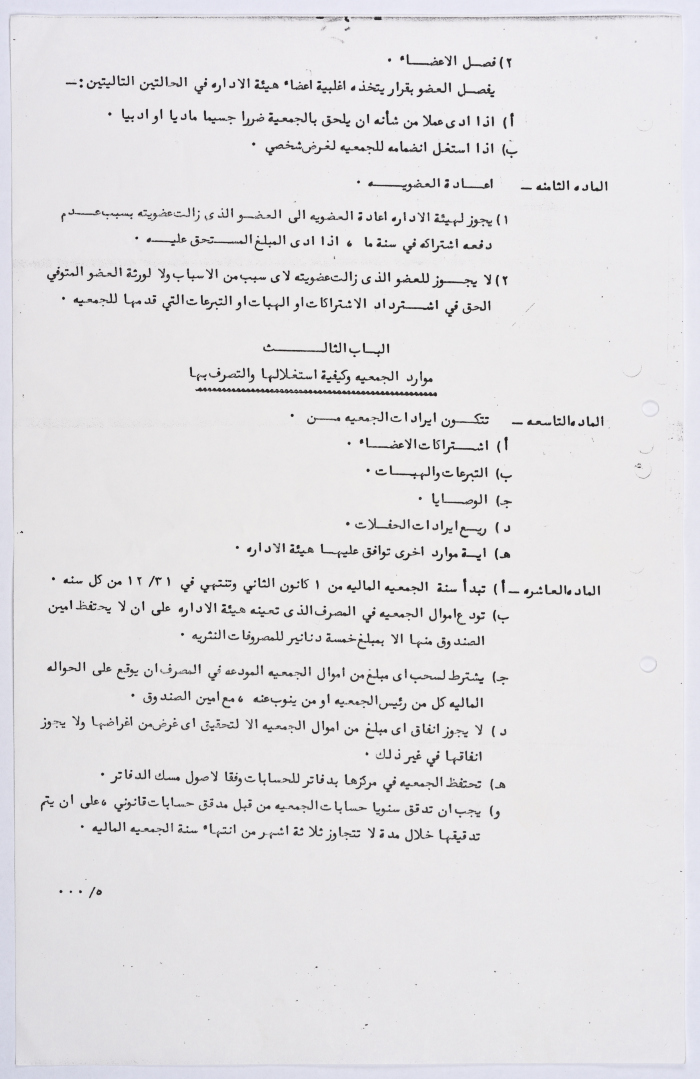 ٢) فصل الاعضاء .
يفصل العضو بقرار يتخذه اغلبية اعضاء هيئة الاداره في الحالتين التاليتين :ـ
أ) اذا ادى عملا من شأنه ان يلحق بالجمعية ضررا جسيما ماديا او ادبيا .
ب) اذا استغل انضمامه للجمعيه لغرض شخصي .
الماده الثامنه ـ اعادة العضويه .
١) يجوز لهيئة الاداره اعادة العضويه الى العضو الذى زالت عضويته بسبب عدم
دفعه اشتراكه في سنة ما ، اذا ادى المبلغ المستحق عليه .
٢) لا يجوز للعضو الذى زالت عضويته لاى سبب من الاسباب ولا لورثة العضو المتوفي
الحق في استرداد الاشتراكات او الهبات او التبرعات التي قدمها للجمعيه .
الباب الثالث
موارد الجمعيه وكيفية استغلالها والتصرف بها
الماده التاسعه ـ تتكون ايرادات الجمعيه من .
أ) اشتراكات الاعضاء .
ب) التبرعات والهبات .
جـ) الوصايا .
د) ريع ايرادات الحفلات .
هـ) اية موارد اخرى توافق عليها هيئة الاداره .
الماده العاشره ـ أ) تبدأ سنة الجمعيه الماليه من ١ كانون الثاني وتنتهي في ٣١/ ١٢ من كل سنه .
ب) تودع اموال الجمعيه في المصرف الذى تعينه هيئة الاداره على ان لا يحتفظ امين
الصندوق منها الا بمبلغ خمسة دنانير للمصروفات النثريه .
جـ) يشترط لسحب اى مبلغ من اموال الجمعيه المودعه في المصرف ان يوقع على الحواله
الماليه كل من رئيس الجمعيه او من ينوب عنه ، مع امين الصندوق .
د) لا يجوز انفاق اى مبلغ من اموال الجمعيه الا لتحقيق اى غرض من اغراضها ولا يجوز
انفاقها في غير ذلك .
هـ) تحتفظ الجمعيه في مركزها بدفاتر للحسابات وفقا لاصول مسك الدفاتر .
و) يجب ان تدقق سنويا حسابات الجمعيه من قبل مدقق حسابات قانوني ، على ان يتم
تدقيقها خلال مدة لا تتجاوز ثلاثة اشهر من انتهاء سنة الجمعيه الماليه .
٥/ ...